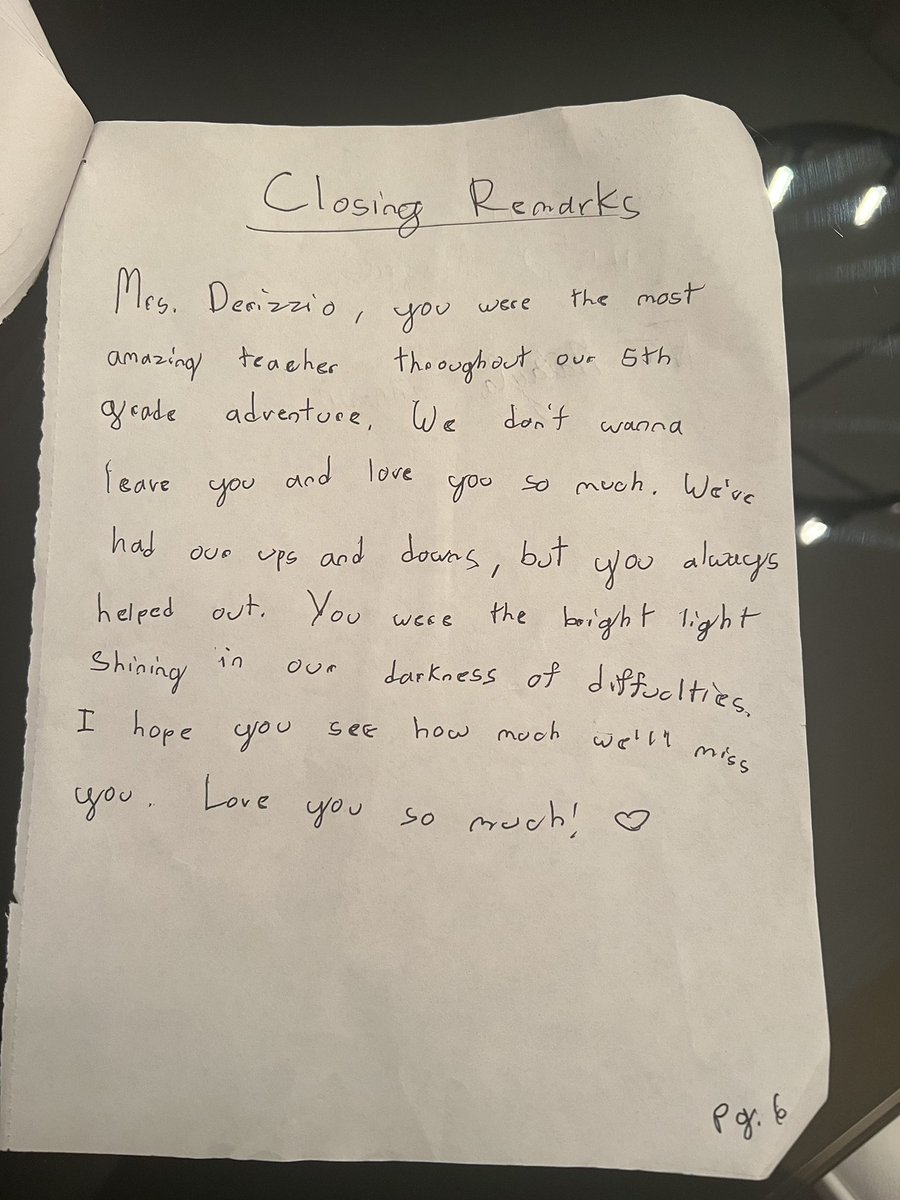 Closing Remarks
Mrs. Derizzio, you were the most
amazing teacher throughout our 5th
grade adventure. We don't wanna
leave you and love you so much. We've
had our ups and downs, but you always
helped out. You were the bright light
Shining in our darkness of diffuclties.
I hope you see how much we'll miss
you. Love you so much! ♡
Pg. 6